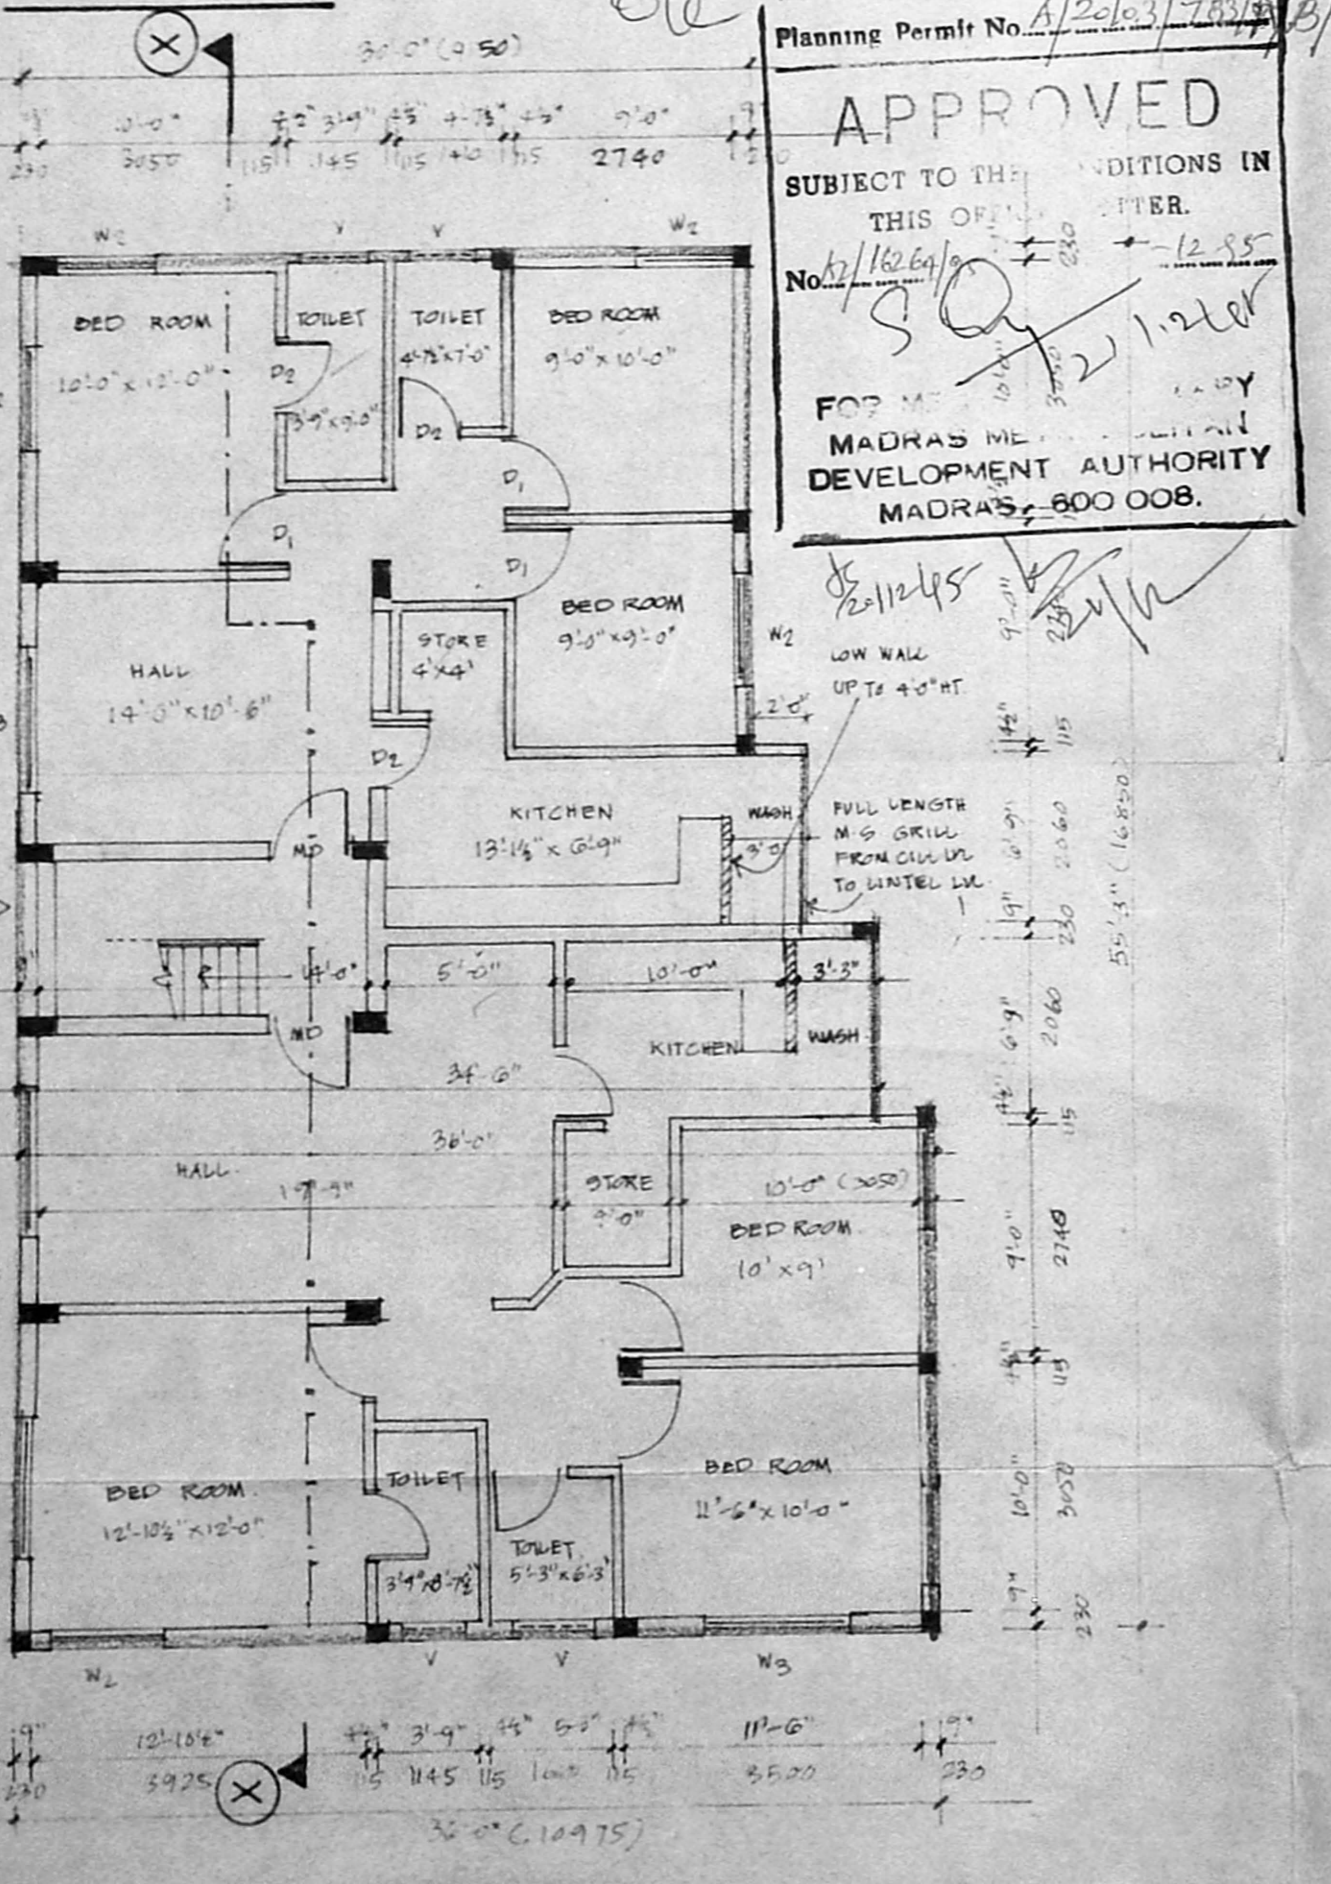 Planning Permit No. A/20103/783/
APPROVED
SUBJECT TO THE NDITIONS IN
THIS OFFI TTER.
No. -12-95
FOR
MADRAS ME
DEVELOPMENT AUTHORITY
MADRAS. 600 008.
X
30'-0" (9150)
10'-0" 4½" 3'-9" 4½" 4'-7½" 4½" 9'-0" 9"
230 3050 115 1145 115 1410 115 2740
W2 V V W2
BED ROOM
10'-0" x 12'-0"
TOILET
3'-9" x 9'-0"
D2
TOILET
4'-7½" x 7'-0"
D2
BED ROOM
9'-0" x 10'-0"
D1
D1
D1
BED ROOM
9'-0" x 9'-0"
W2
STORE
4'x4'
HALL
14'-0" x 10'-6"
D2
LOW WALL
UP TO 4'-0" HT
2'-0"
KITCHEN
13'-1½" x 6'-9"
WASH
3'-0"
FULL LENGTH
M.S GRILL
FROM CILL LVL
TO LINTEL LVL.
MD
14'-0" 5'-0" 10'-0" 3'-3"
MD
KITCHEN
WASH
34'-6"
36'-0"
HALL
19'-9"
STORE
10'-0" (3050)
BED ROOM
10' x 9'
BED ROOM
12'-10½" x 12'-0"
TOILET
3'-9" x 8'-7½"
TOILET
5'-3" x 6'-3"
BED ROOM
11'-6" x 10'-0"
W2 V V W3
9" 12'-10½" 4½" 3'-9" 4½" 4½" 11'-6" 9"
230 3925 115 1145 115 115 3500 230
X
36'-0" (10975)
230
3050
9'-0"
4½" 115
6'-9" 2060
9" 230
6'-9" 2060
4½" 115
9'-0" 2740
4½" 115
10'-0" 3050
9" 230
55'-3" (16850)